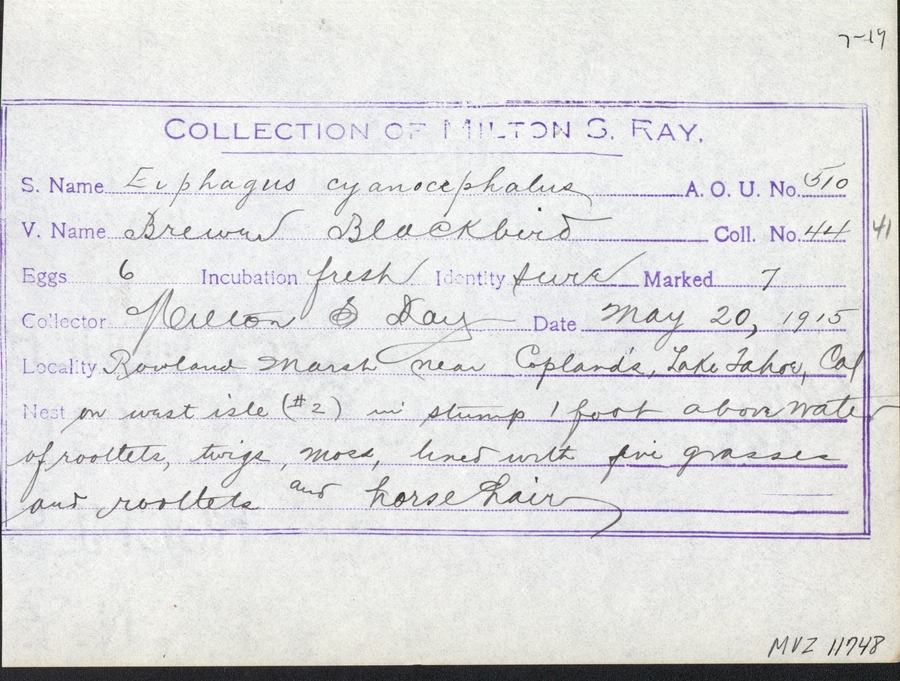 7-19
COLLECTION OF MILTON S. RAY.
S. Name Euphagus cyanocephalus A. O. U. No. 510
V. Name Brewers Blackbird Coll. No. 44 41
Eggs 6 Incubation fresh Identity sure Marked 7
Collector Milton S Ray Date May 20, 1915
Locality Rowland Marsh near Copland's, Lake Tahoe, Cal
Nest on west isle (#2) in stump 1 foot above water
of rootlets, twigs, moss, lined with fine grasses
and rootlets and horse hair
MVZ 11748